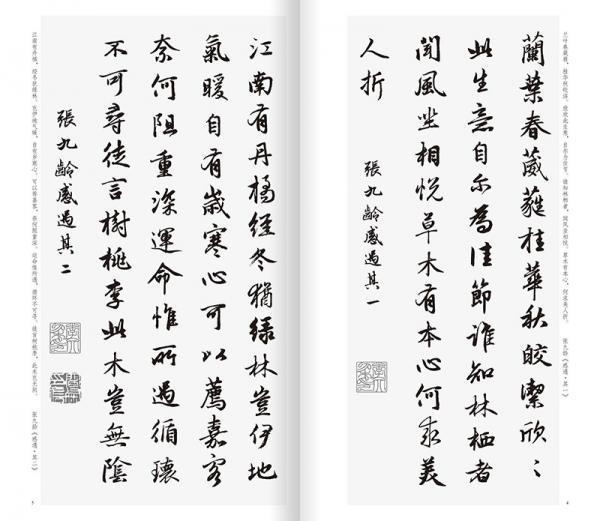 兰叶春葳蕤，桂华秋皎洁。欣欣此生意，自尔为佳节。谁知林栖者，闻风坐相悦。草木有本心，何求美人折。 张九龄《感遇·其一》
蘭葉春葳蕤桂華秋皎潔欣〻
此生意自尔為佳節誰知林栖者
聞風坐相悦草木有本心何求美
人折
張九齡感遇其一
4
江南有丹橘經冬猶绿林豈伊地
氣暖自有歲寒心可以薦嘉客
奈何阻重深運命惟所遇循環
不可尋徒言樹桃李此木豈無陰
張九齡感遇其二
江南有丹橘，经冬犹绿林。岂伊地气暖，自有岁寒心。可以荐嘉客，奈何阻重深。运命惟所遇，循环不可寻。徒言树桃李，此木岂无阴。 张九龄《感遇·其二》
5